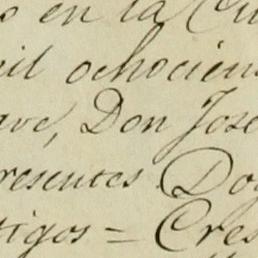 s en la Ciu
mil ochocien
ave, Don José
resentes Do
tigos = Cres